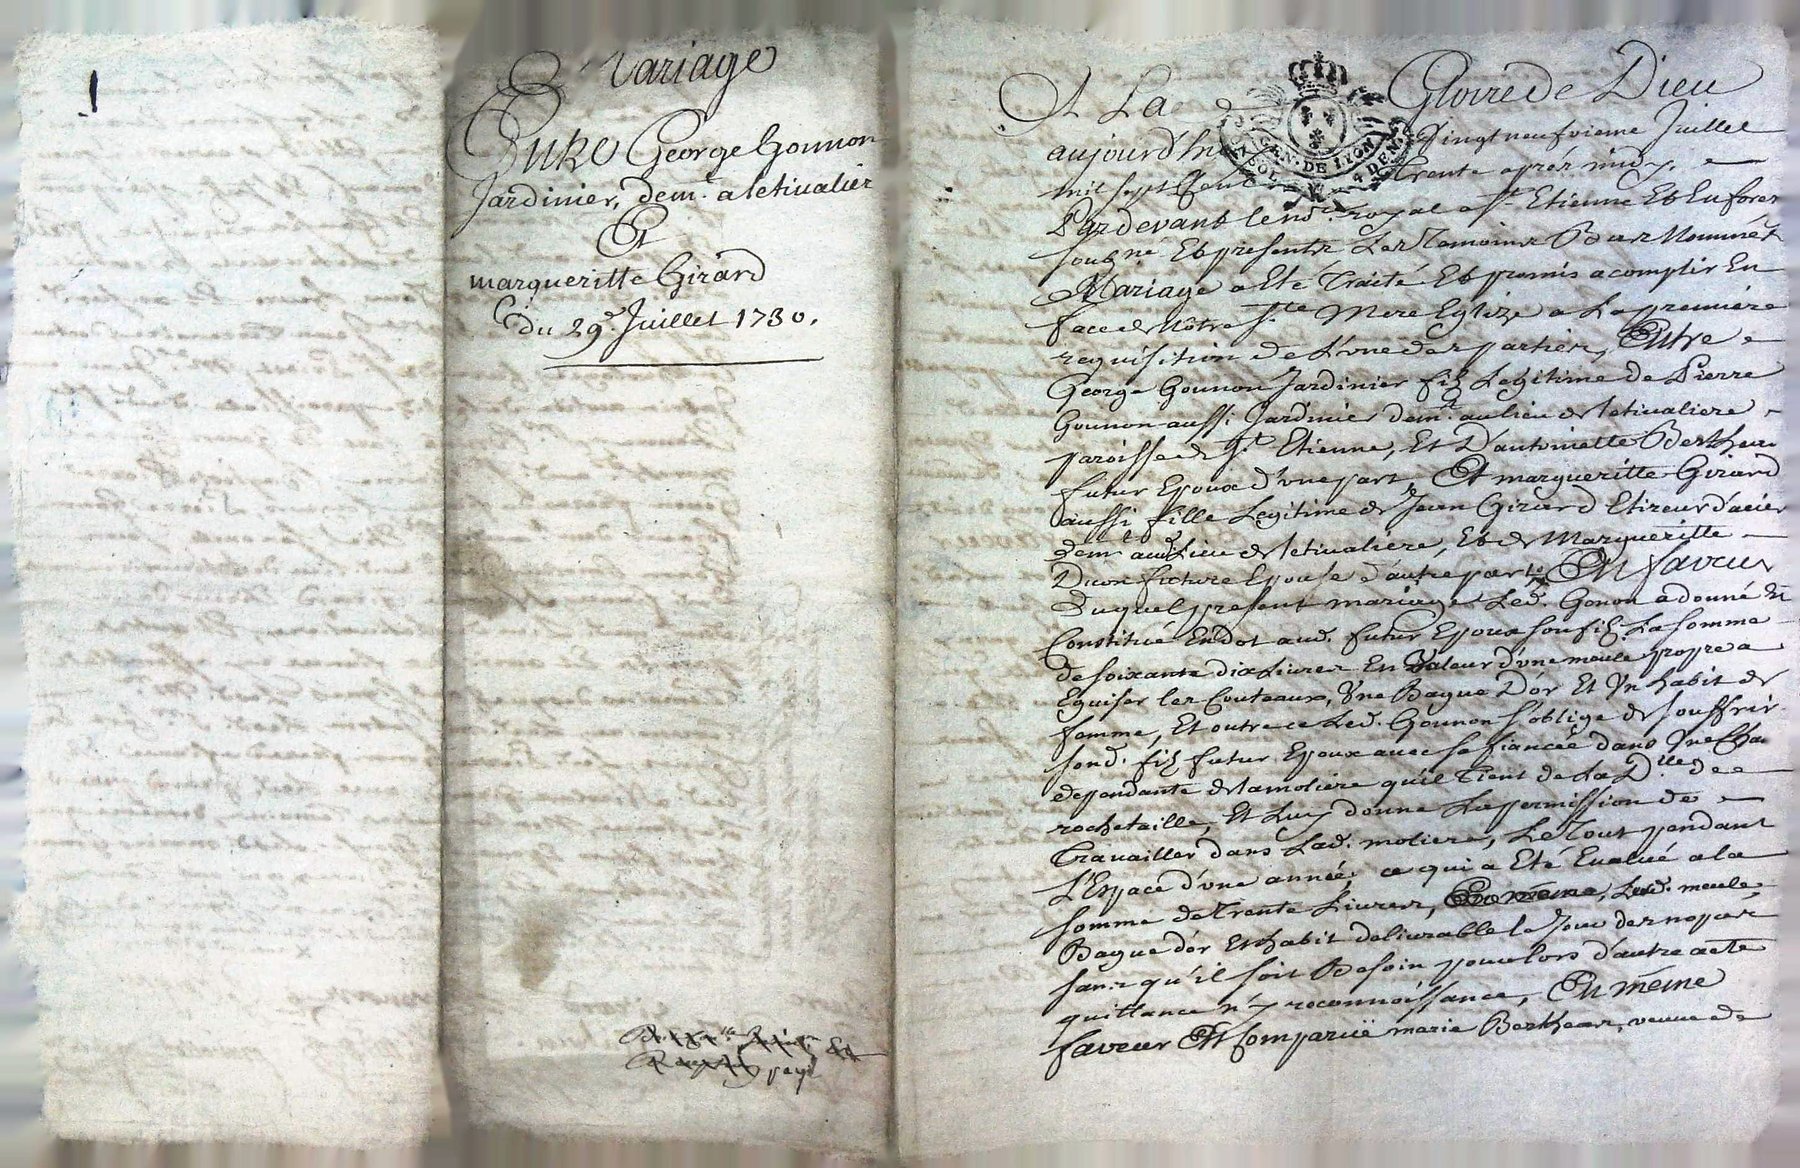 Mariage
Entre George Gounon
Jardinier, dem.t a letiualier
Et
margueritte Girard
Du 29.e Juillet 1730.
payé
A La Gloire de Dieu
GEN. DE LYON
4 DEN.
aujourd'huy Vingt neufvieme Juillet
mil sept Cent trente aprés midy,
Pardevant le no.re royal a S.t Etienne En forez
soubsné Et presents Les Temoins Bas Nommés
Mariage a Eté Traité Et promis acomplir En
face de Nôtre S.te Mere Eglize a La premiére
requisition de L'vne des parties, Entre
George Gounon Jardinier fils Legitime de Pierre
Gounon aussi Jardinier dem.t au lieu de letiualiere
paroisse de S.t Etienne, Et D'antoinette Berthear
futur Epoux d'vne part, Et margueritte Girard
aussi fille Legitime de Jean Girard Etireur d'acier
dem.t aud. Lieu de letiualiére, Et de Margueritte
Duon future Epouse d'autre part, En faveur
Duquel present mariage Led. Gonon a donné Et
Constitué En dot aud. futur Epoux son fils La somme
de soixante dix Livres En Valeur d'vne meule propre a
Eguiser les Couteaux, Vne Bague D'or Et Vn habit de
femme, Et outre ce Led. Gounon s'oblige de souffrir
sond. fils futur Epoux avec sa fiancée dans Vne Cha
dependante de la moliére qu'il Tient de La D.lle de
rochetaille, Et Luy donne La permission de
Travailler dans Lad. moliere, Le Tout pendant
L'Espace d'vne année ce qui a Eté Evalué a la
somme de Trente Livres, Lad. meule,
Bague d'or Et habit deliurable le Jour des nopces
sans qu'il soit Besoin pour lors d'autre acte
quittance n'y reconnoissance, En méme
faveur Et Comparüe marie Berthear, veuve de